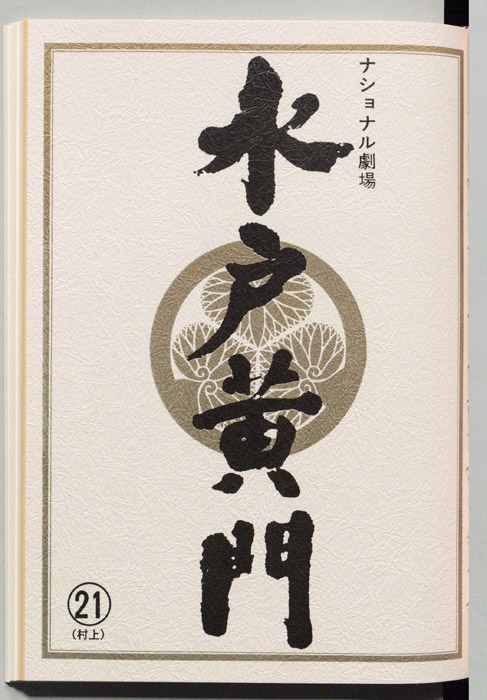 ナショナル劇場
水戸黄門
21
（村上）